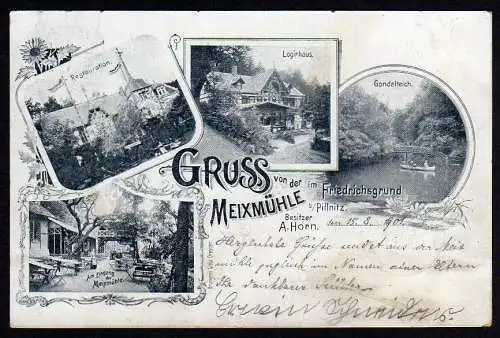 Restauration.
Logirhaus.
Gondelteich.
GRUSS von der
MEIXMÜHLE
im Friedrichsgrund
b/Pillnitz.
Besitzer
A. Horn.
Am Eingang
Meixmühle.
den 15. 8. 1901
Herzlichste Grüße sendet aus der Meix
mühle zugleich im Namen seiner Eltern
Ihr dankbarer Schüler
Erwin